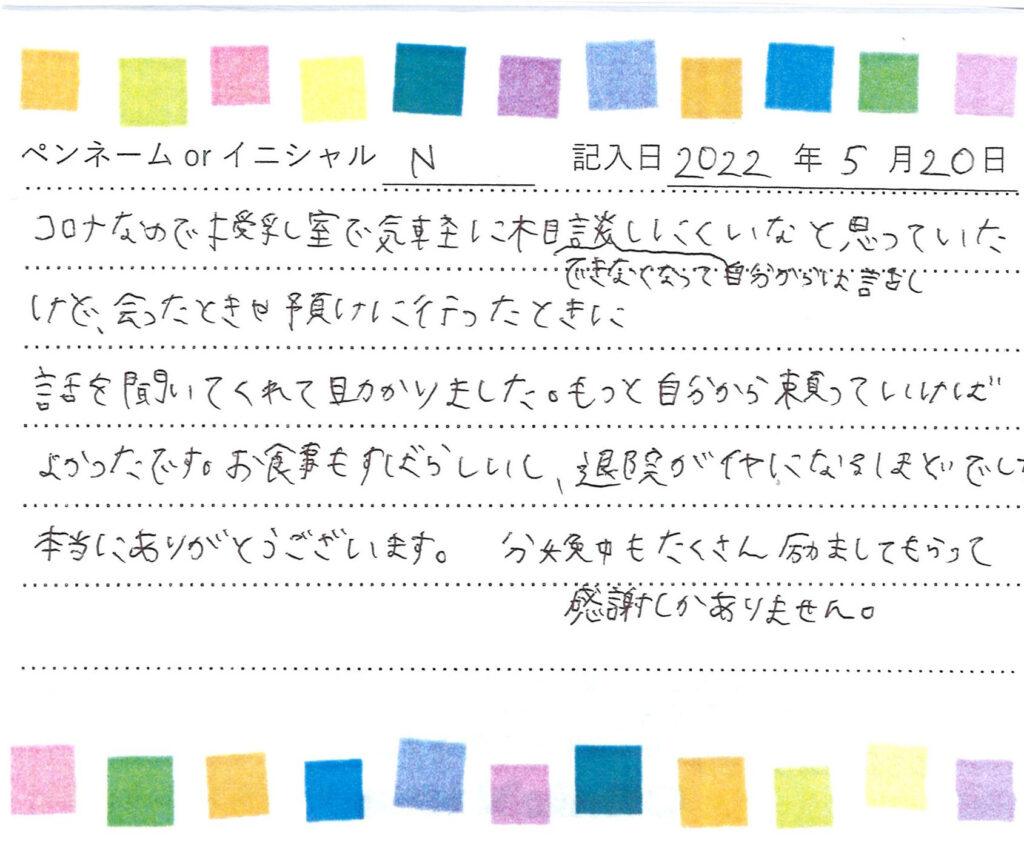 ペンネーム or イニシャル N 記入日 2022 年 5 月 20 日
コロナなので授乳し室で気軽に相談しにくいなと思っていた
できなくなって自分からは話し
けど、会ったときや預けに行ったときに
話を聞いてくれて助かりました。もっと自分から頼っていけば
よかったです。お食事もすばらしいし、退院がイヤになるほどでした
本当にありがとうございます。 分娩中もたくさん励ましてもらって
感謝しかありません。